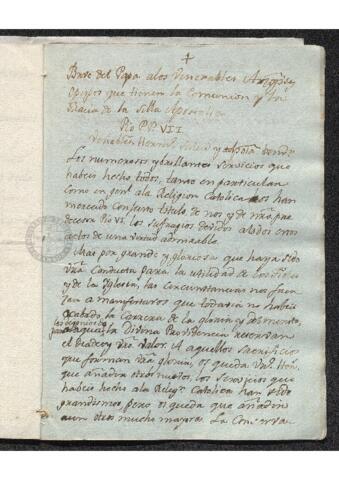 +
Breve del Papa a los Venerables Arzobis, y
Obispos que tienen la Comunion y
de la Silla Apostolica
Pio P.P. VII.
Venerables Herm.s Salud y
Los numerosos y brillantes servicios que
habeis hecho todos, tanto en particular
como en gen.l ala Religion Catolica os han
merecido con justo titulo de nos y de nr̃o pre
decesor Pio VI. los sufragios debidos alos
actos de una virtud admirable.
Mas por grande y gloriosa que haya sido
vr̃a Conducta para la utilidad de los fieles
y de la Yglesia, las circunstancias nos fuer
zan a manifestaros que todavia no habeis
acabado la Carrera de la gloria y de merito,
a la que la Divina Providencia reservan
el deseo y vr̃o valor. A aquellos sacrificios
que forman vr̃a gloria, os queda Ven. Her.
que añadir otros nuevos, los servicios que
habeis hecho ala Relig.n Catolica han sido
grandisimos, pero os queda que añadir
aun otros mucho mayores. La Conserva-